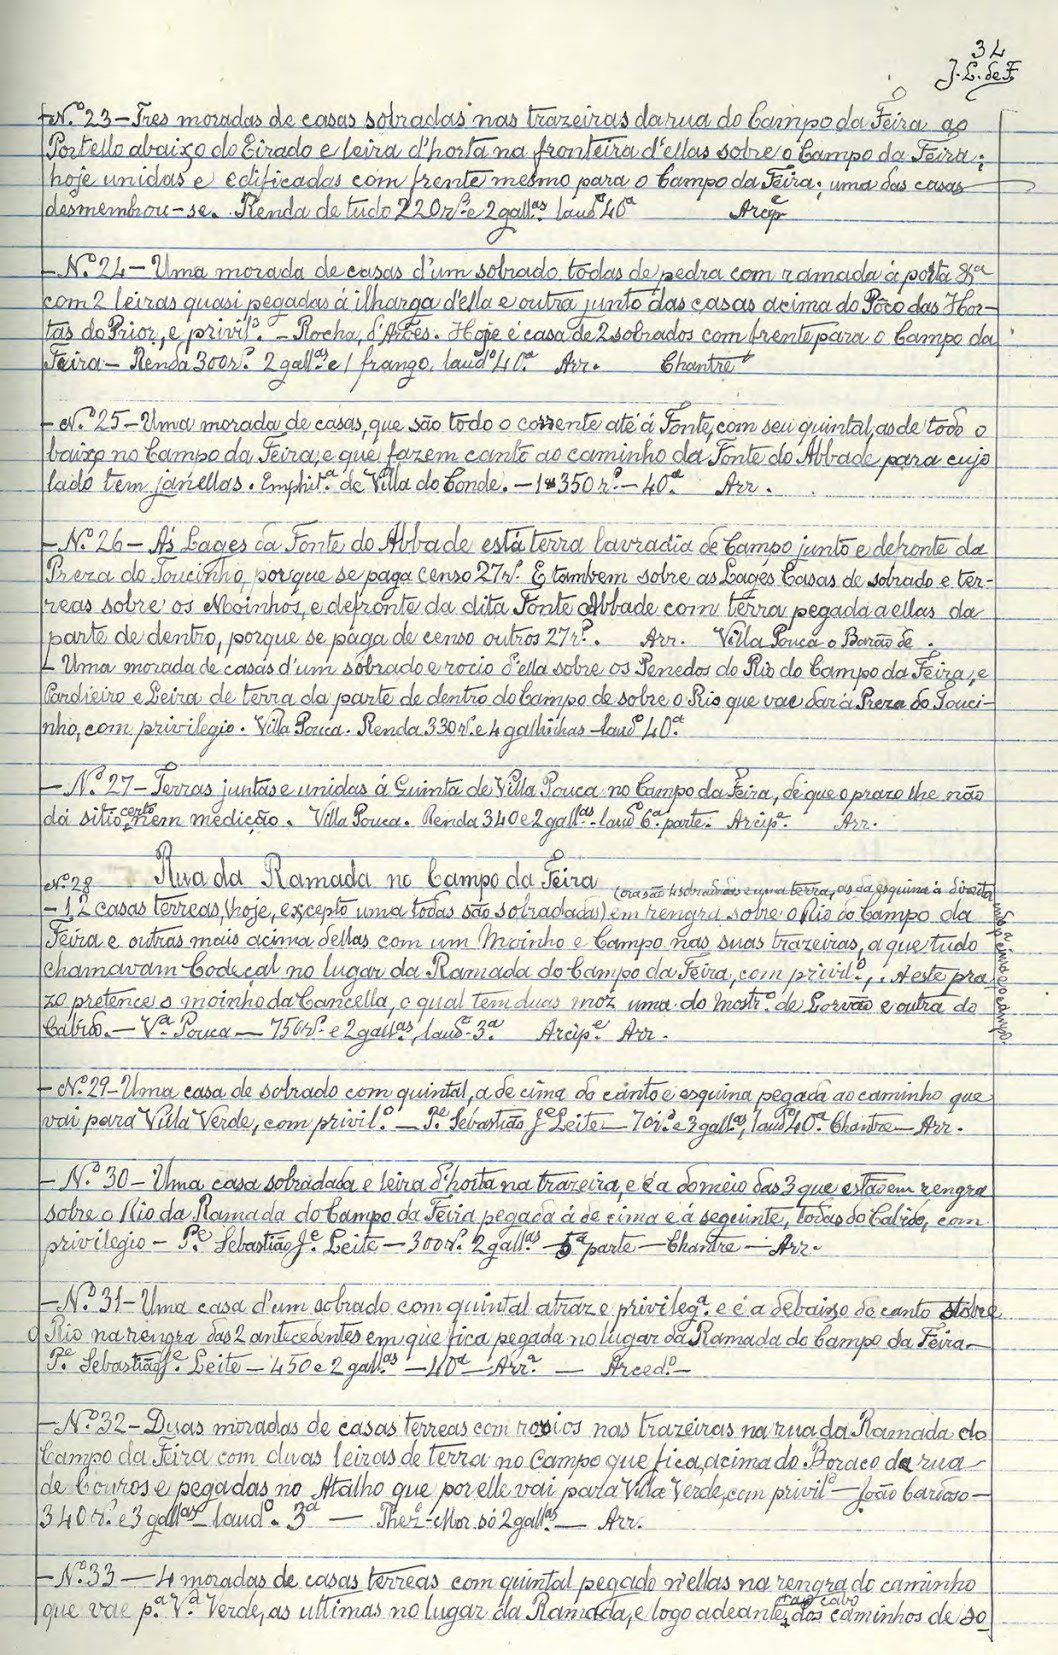 34
J. L. de F.
- N.º 23 - Tres moradas de casas sobradas nas trazeiras da rua do Campo da Feira ao
Portello abaixo do Eirado e leira d'horta na fronteira d'ellas sobre o Campo da Feira;
hoje unidas e edificadas com frente mesmo para o Campo da Feira; uma das casas
desmembrou-se. Renda de tudo 220 r.s e 2 gall.as laud.º 40.ª Arcip.e
- N.º 24 - Uma morada de casas d'um sobrado todas de pedra com ramada á porta &.ª
com 2 leiras quasi pegadas á ilharga d'ella e outra junto das casas acima do Poço das Hor-
tas do Prior, e privil.º - Rocha, d'Arões. Hoje é casa de 2 sobrados com frente para o Campo da
Feira - Renda 300 r.s 2 gall.as e 1 frango, laud.º 40.ª Arr. Chantre
- N.º 25 - Uma morada de casas, que são todo o corrente até á Fonte, com seu quintal, as de todo o
baixo no Campo da Feira, e que fazem canto ao caminho da Fonte do Abbade, para cujo
lado tem janellas. Emphit.ª de Villa do Conde. - 1$350 r.s - 40.ª Arr.
- N.º 26 - Ás Lages da Fonte do Abbade está terra lavradia de Campo junto e defronte da
Preza do Toucinho, por que se paga censo 27 r.s E tambem sobre as Lages Casas de sobrado e ter-
reas sobre os Moinhos, e defronte da dita Fonte Abbade com terra pegada a ellas da
parte de dentro, porque se paga de censo outros 27 r.s. Arr. Villa Pouca o Barão de.
- Uma morada de casas d'um sobrado e rocio d'ella sobre os Penedos do Rio do Campo da Feira, e
Pardieiro e Leira de terra da parte de dentro do Campo de sobre o Rio que vae dar á Preza do Touci-
nho, com privilegio. Villa Pouca. Renda 330 r.s e 4 gallinhas laud.º 40.ª
- N.º 27 - Terras juntas e unidas á Quinta de Villa Pouca no Campo da Feira, de que o prazo lhe não
dá sitio certo, nem medição. Villa Pouca. Renda 340 e 2 gall.as laud.º 6.ª parte. Arcip.e Arr.
Rua da Ramada no Campo da Feira
N.º 28
(ora são 4 sobradadas e uma terra, as da esquina á direita
- 12 casas terreas, (hoje, excepto uma todas são sobradadas) em rengra sobre o Rio do Campo da
Feira e outras mais acima dellas com um Moinho e Campo nas suas trazeiras, a que tudo
chamavam Codeçal no lugar da Ramada do Campo da Feira, com privil.º,. A este pra-
zo pretence o moinho da Cancella, o qual tem duas moz uma do Mostr.º de Lorvão e outra do
Cabido. - V.ª Pouca - 750 r.s e 2 gall.as, laud.º 3.ª Arcip.e Arr.
- N.º 29 - Uma casa de sobrado com quintal, a de cima do canto e esquina pegada ao caminho que
vai para Villa Verde, com privil.º - P.e Sebastião J.e Leite - 70 r.s e 3 gall.as, laud.º 40.ª Chantre - Arr.
- N.º 30 - Uma casa sobradada e leira d'horta na trazeira, e é a do meio das 3 que estão em rengra
sobre o Rio da Ramada do Campo da Feira pegada á de cima e á seguinte, todas do Cabido, com
privilegio - P.e Sebastião J.e Leite - 300 r.s 2 gall.as - 5.ª parte - Chantre - Arr.
- N.º 31 - Uma casa d'um sobrado com quintal atraz e privileg.º e é a debaixo do canto sobre
o Rio na rengra das 2 antecedentes em que fica pegada no lugar da Ramada do Campo da Feira -
P.e Sebastião J.e Leite - 450 e 2 gall.as - 40.ª - Arr.ª - Arced.º -
- N.º 32 - Duas moradas de casas terreas com rocios nas trazeiras na rua da Ramada do
Campo da Feira com duas leiras de terra no Campo que fica acima do Boraco da rua
de Couros e pegadas no Atalho que por elle vai para Villa Verde, com privil.º - João Cardoso -
340 r.s e 3 gall.as - laud.º 3.ª - Thez.º-Mor só 2 gall.as - Arr.
- N.º 33 - 4 moradas de casas terreas com quintal pegado n'ellas na rengra do caminho
que vae p.ª V.ª Verde, as ultimas no lugar da Ramada, e logo adeante, + ao cabo dos caminhos de so-